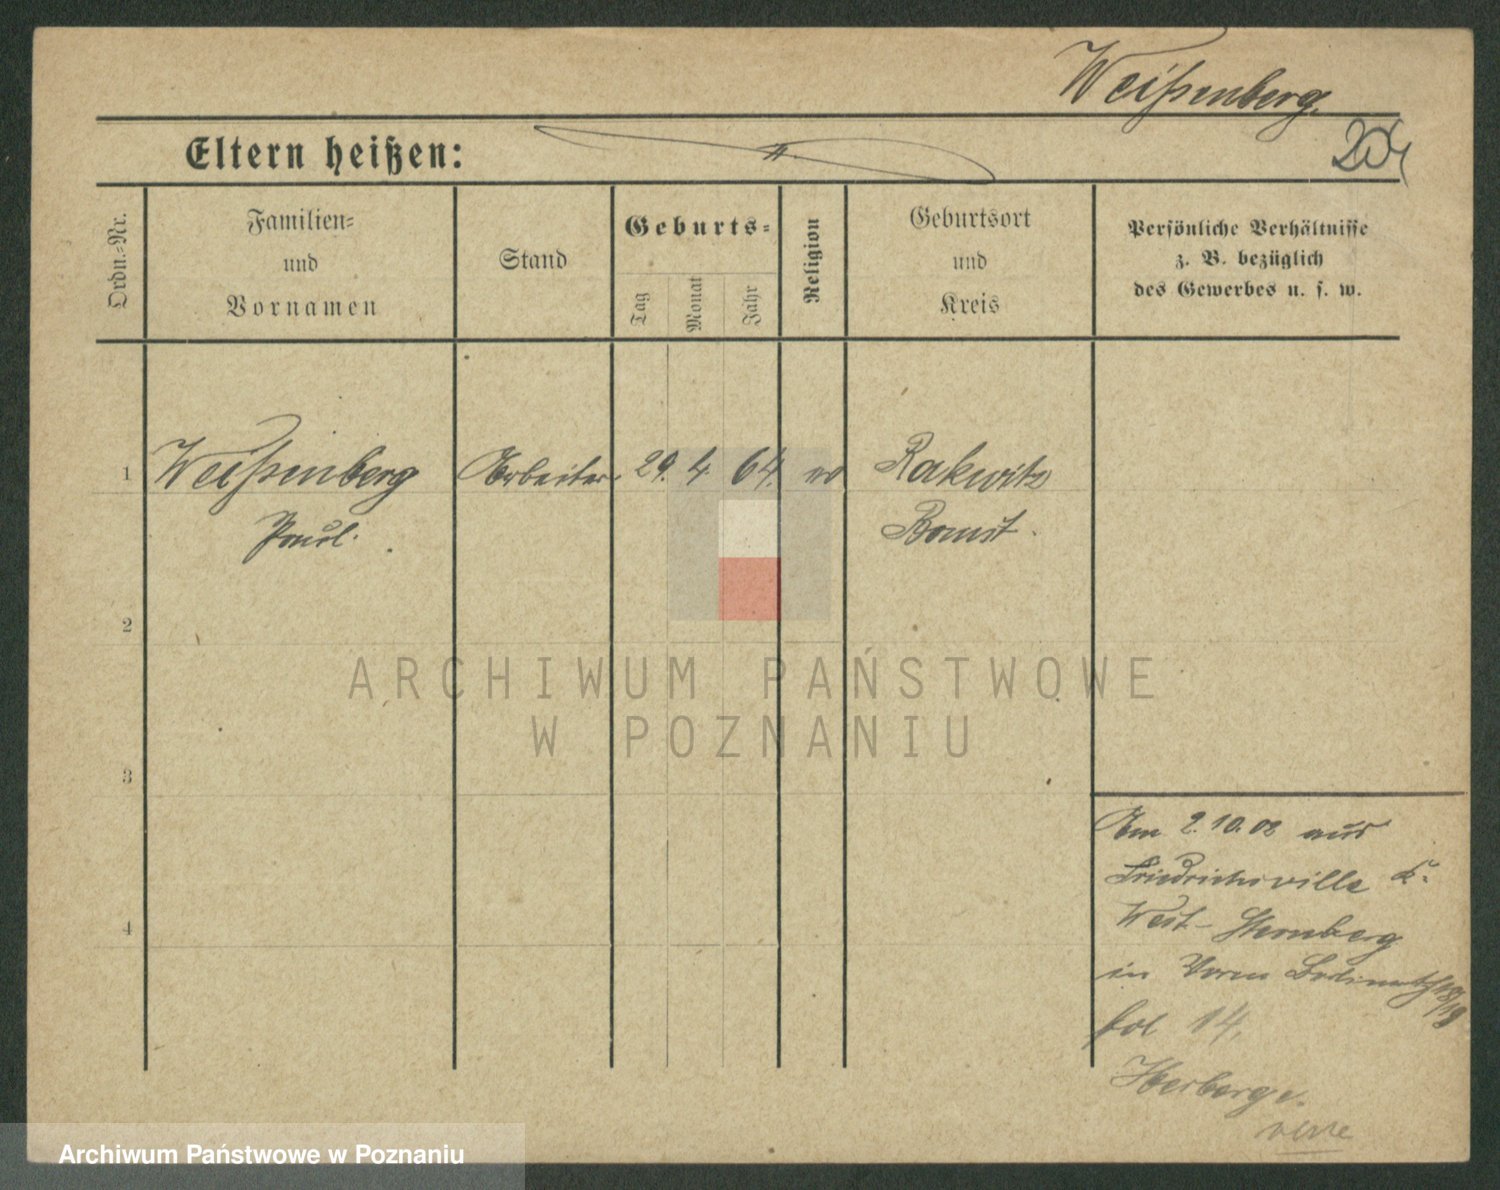 Weißenberg.
204
Eltern heißen:
Ordn.-Nr.
Familien-
und
Vornamen
Stand
Geburts-
Tag
Monat
Jahr
Religion
Geburtsort
und
Kreis
Persönliche Verhältnisse
z. B. bezüglich
des Gewerbes u. s. w.
1 Weißenberg Arbeiter 29. 4. 64. Rakwitz
Paul. Bomst.
2
3
4
ARCHIWUM PAŃSTWOWE
W POZNANIU
Am 2.10.08 aus
Friedrichsville K.
West-Sternberg
in
fol 14.
Herberge.
Archiwum Państwowe w Poznaniu